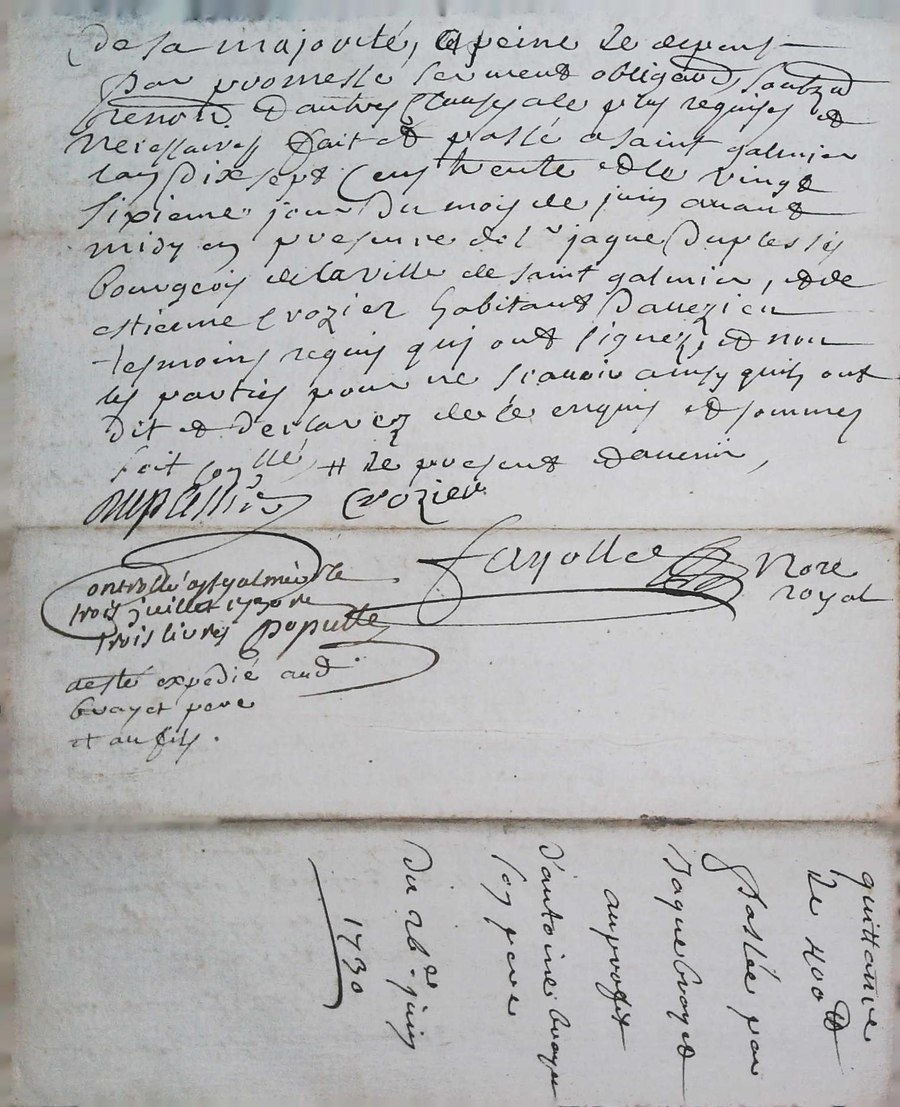 de sa majorité, a peine de depens
par promesse serment obligaōn soubz̄on
renonc̄ d'autres clauses ale plus requises et
necessaires fait et passé a saint galmier
lan dix sept cens trente et le vingt
sixieme jour du mois de juin avant
midy en presence de sr jaque duplessis
bourgeois de la ville de saint galmier, et de
estienne crozier habitant d'avezieu
tesmoins requis qui ont signez, et non
les parties pour ne scavoir ainsy quils ont
dit et declarez de ce enquis et sommes
soit # le present et avenir,
duplessis crozier
fayolle Nore
royal
Controllé a st galmier le
trois juillet 1730 re
trois livres populle
a esté expedié aud
brayet pere
et au fils.
quittance
de 400 ₶
passée par
jaque brayet
au profit
d'antoine brayet
son pere
du 26e juin
1730